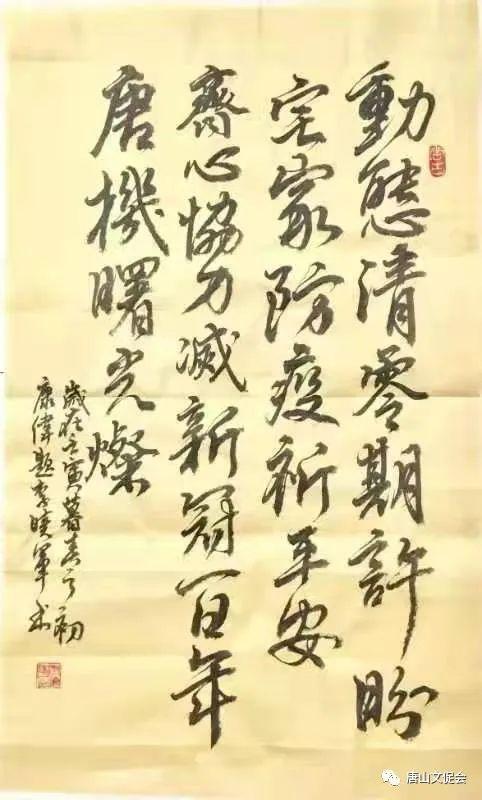 動態清零期許盼
宅家防疫祈平安
齊心協力滅新冠百年
唐機曙光燦
歲在壬寅暮春之初
康偉題李曉軍书
唐山文促会